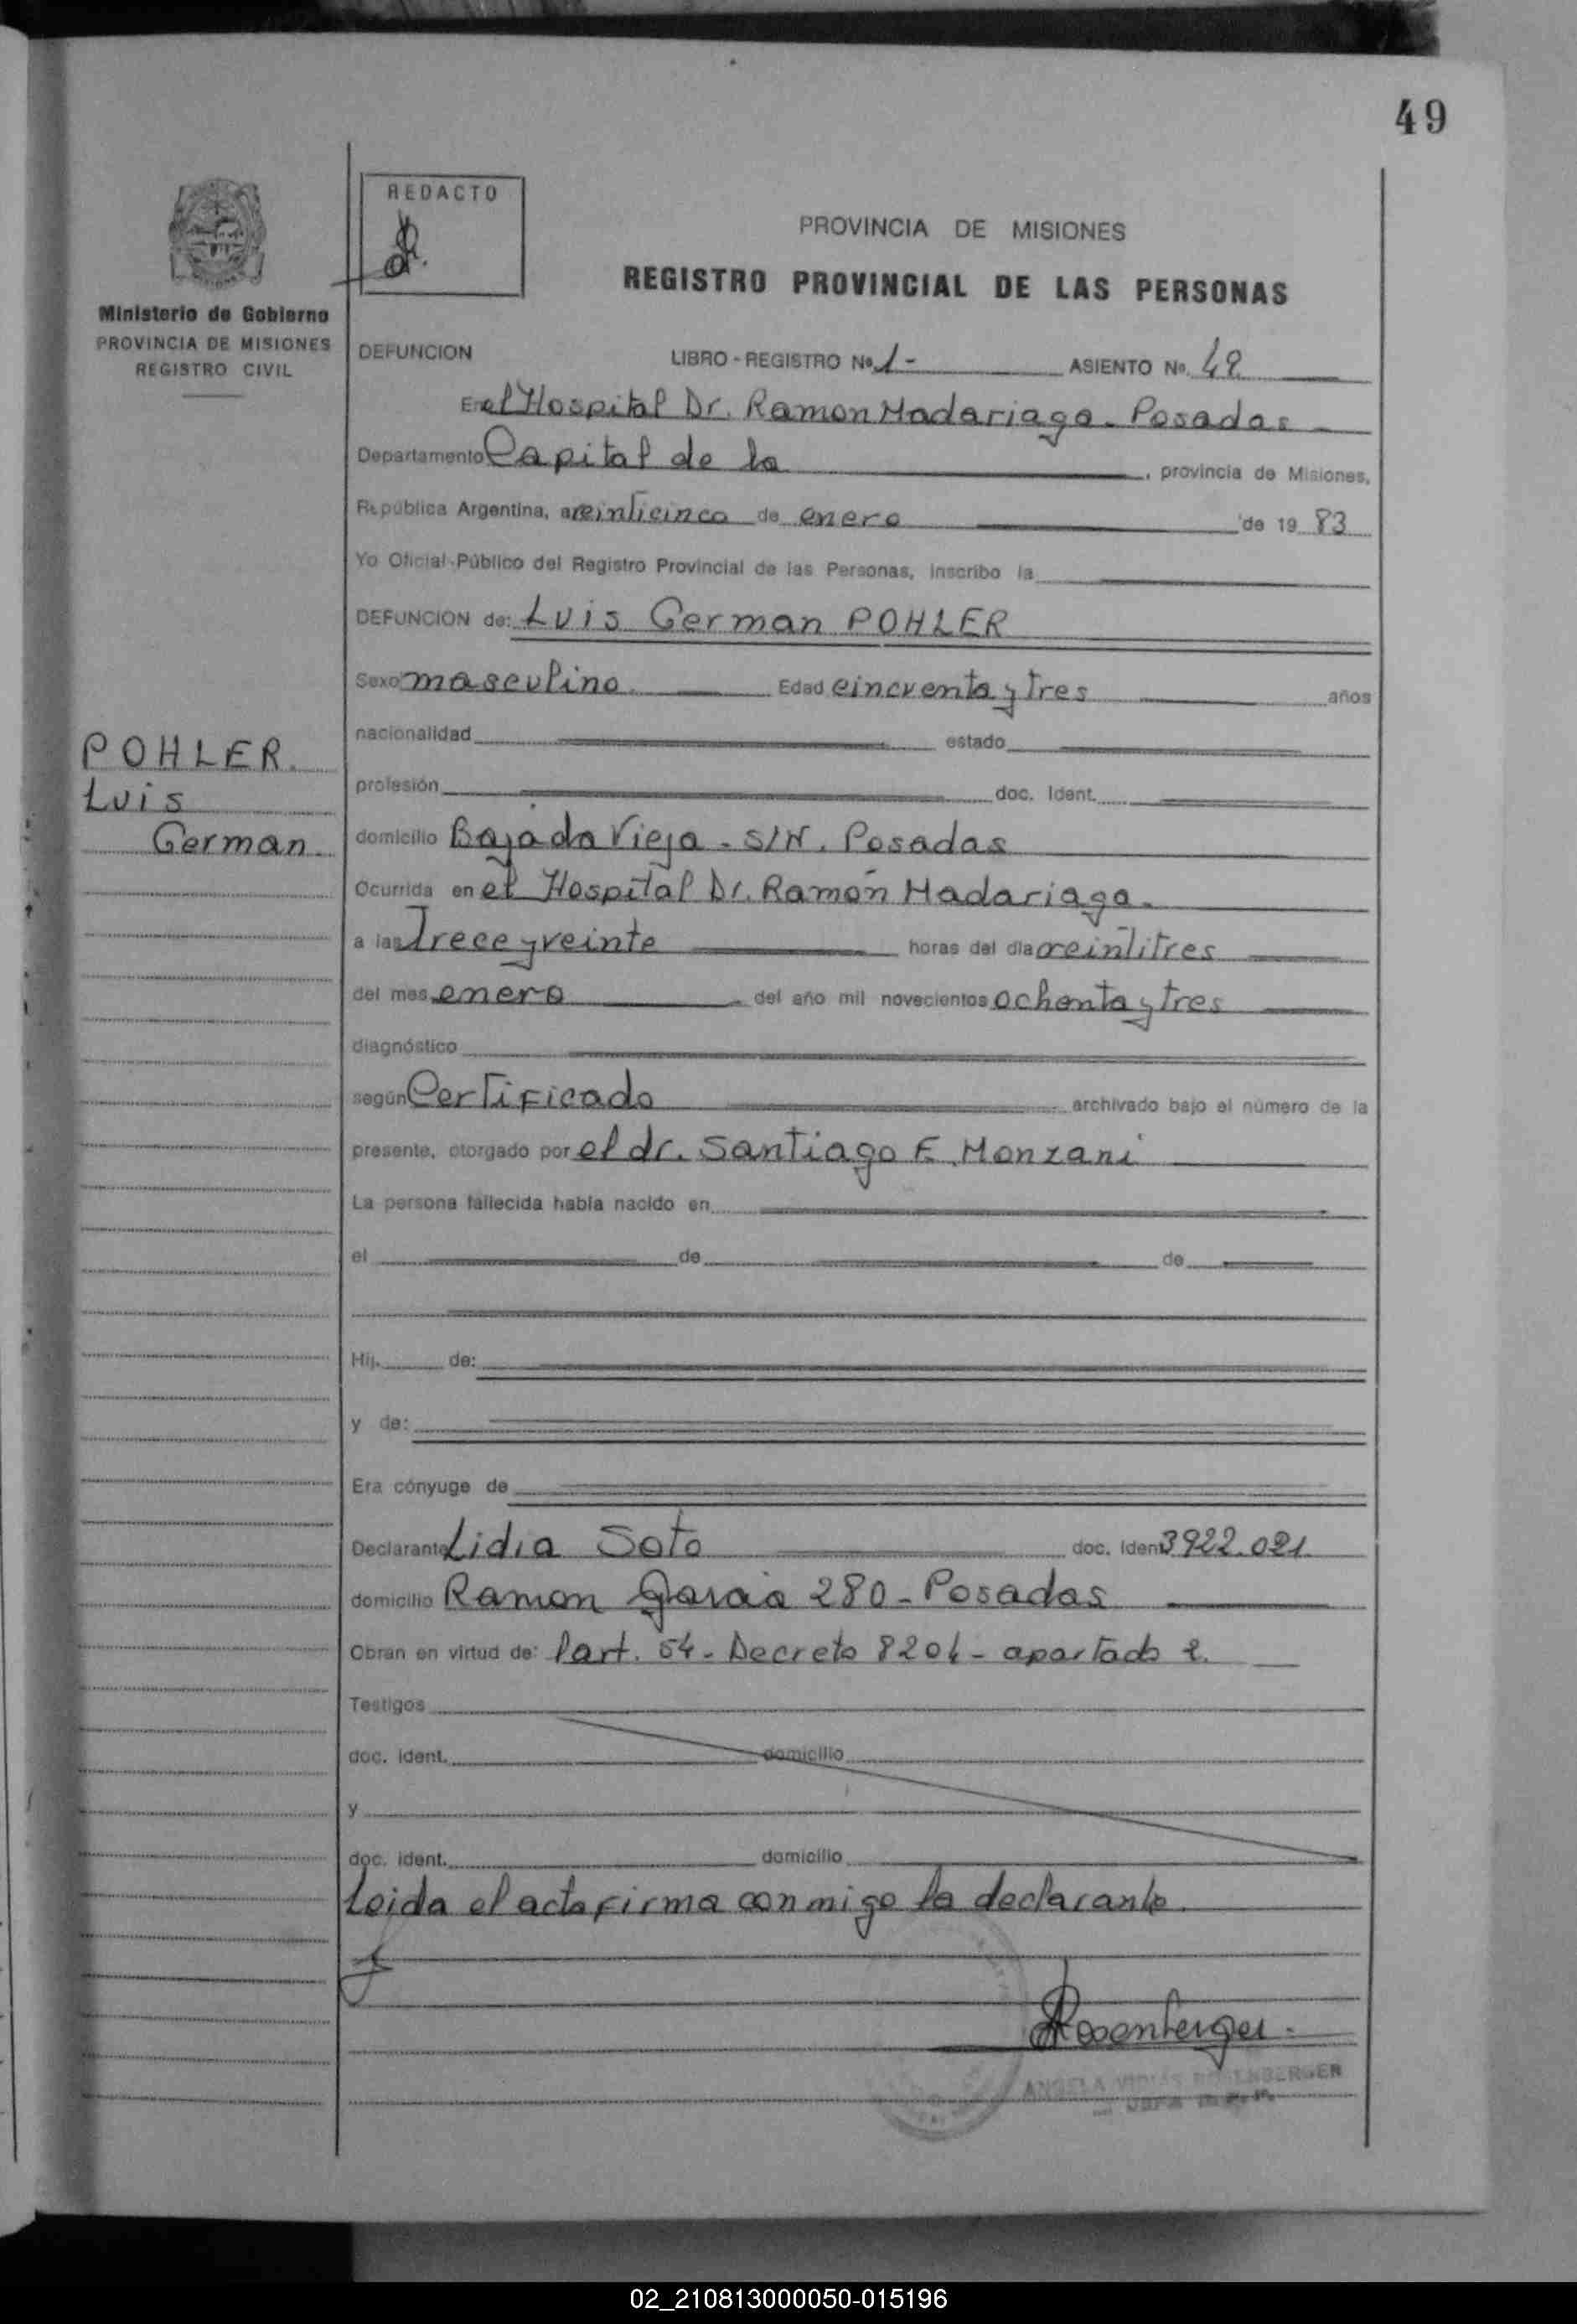 49
REDACTO
PROVINCIA DE MISIONES
REGISTRO PROVINCIAL DE LAS PERSONAS
Ministerio de Gobierno
PROVINCIA DE MISIONES
REGISTRO CIVIL
DEFUNCION LIBRO - REGISTRO Nº 1- ASIENTO Nº. 48
En el Hospital Dr. Ramon Madariaga - Posadas
Departamento Capital de la , provincia de Misiones,
República Argentina, a veinticinco de enero de 19 83
Yo Oficial-Público del Registro Provincial de las Personas, inscribo la
DEFUNCION de: Luis German POHLER
Sexo masculino Edad cincuenta y tres años
nacionalidad estado
profesión doc. Ident.
POHLER
Luis
German
domicilio Bajada Vieja - S/N. Posadas
Ocurrida en el Hospital Dr. Ramón Madariaga.
a las Trece y veinte horas del día veintitres
del mes enero del año mil novecientos ochenta y tres
diagnóstico
según Certificado archivado bajo el número de la
presente, otorgado por el dr. Santiago F. Monzani
La persona fallecida había nacido en
el de de
Hij. de:
y de:
Era cónyuge de
Declarante Lidia Soto doc. Ident 3922.021
domicilio Ramon Garcia 280 - Posadas
Obran en virtud de: l'art. 54 - Decreto 8204 - apartado 2.
Testigos
doc. ident. domicilio
y
doc. ident. domicilio
Leida el acta firma conmigo la declarante.
Rosenberger.
ANGELA ROSENBERGER
02_210813000050-015196